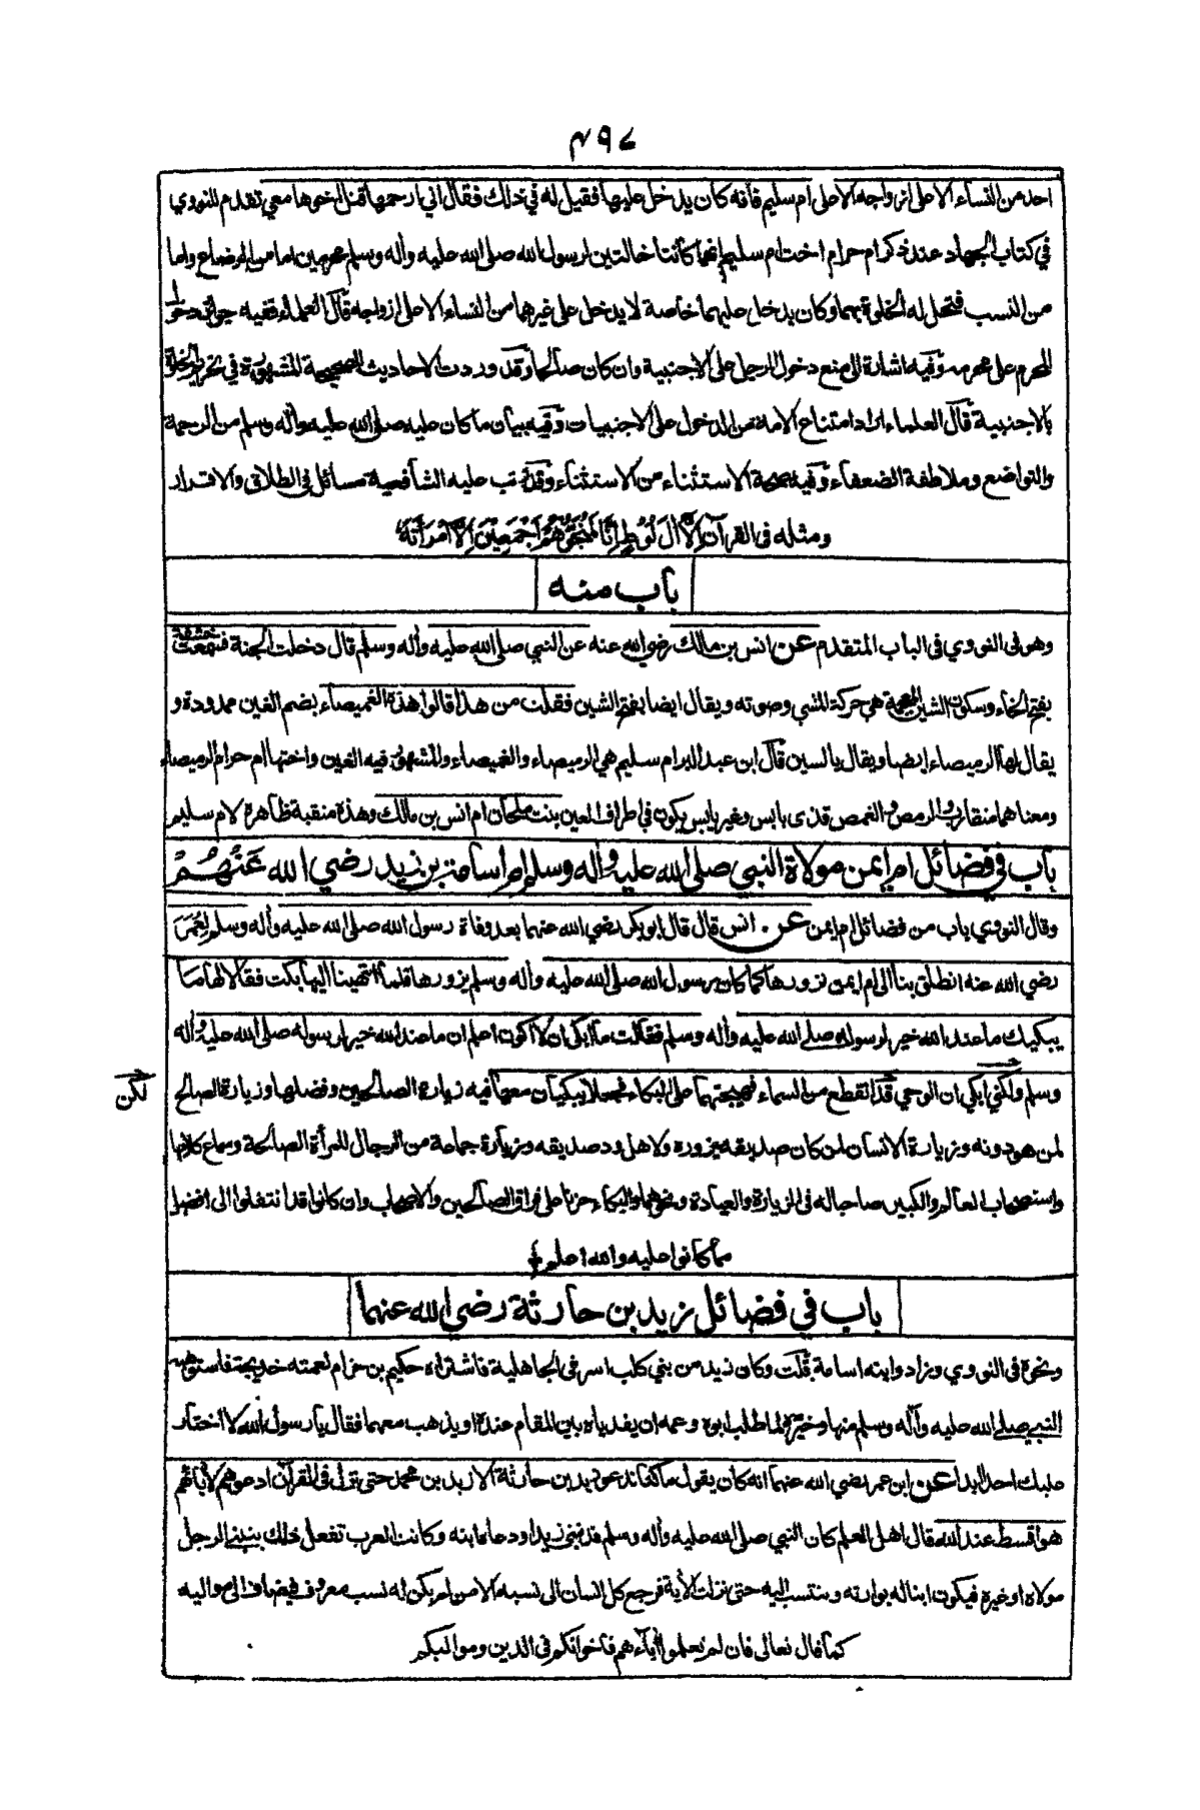 ٤٩٧
احد من النساء الا على ازواجه الا على ام سليم فانه كان يدخل عليها فقيل له في ذلك فقال اني ارحمها قتل اخوها معي تقدم للنووي
في كتاب الجهاد عند ذكر ام حرام اخت ام سليم انهما كانتا خالتين لرسول الله صلى الله عليه وأله وسلم محرمين اما من الرضاع واما
من النسب فتحل له الخلوة بهما وكان يدخل عليهما خاصة لا يدخل على غيرهما من النساء الا على ازواجه قال العلماء ففيه جواز دخول
المحرم على محرمه وفيه اشارة الى منع دخول الرجل على الاجنبية وان كان صالحا وقد وردت الاحاديث الصحيحة المشهورة في تحريم الخلوة
بالاجنبية قال العلماء اراد امتناع الامة من الدخول على الاجنبيات وفيه بيان ما كان عليه صلى الله عليه وأله وسلم من الرحمة
والتواضع وملاطفة الضعفاء وفيه صحة الاستثناء من الاستثناء وقد رتب عليه الشافعية مسائل في الطلاق والاقرار
ومثله في القرآن إِلَّا أٰلَ لُوْطٍ إِنَّا لَمُنَجُّوْهُمْ أَجْمَعِيْنَ إِلَّا امْرَأَتَهُ
باب منه
وهو في النووي في الباب المتقدم عن انس بن مالك رضي الله عنه عن النبي صلى الله عليه وأله وسلم قال دخلت الجنة فسمعت خشفة
بفتح الخاء وسكون الشين المعجمة هي حركة المشي وصوته ويقال ايضا بفتح الشين فقلت من هذا قالوا هذه الغميصاء بضم الغين ممدودة و
يقال لها الرميصاء ايضا ويقال بالسين قال ابن عبد البر ام سليم هي الرميصاء والغميصاء والمشهور فيه الغين واختها ام حرام الرميصاء
ومعناهما متقارب والرمص والغمص قذى يابس وغير يابس يكون في اطراف العين بنت ملحان ام انس بن مالك وهذه منقبة ظاهرة لام سليم
باب في فضائل ام ايمن مولاة النبي صلى الله عليه وأله وسلم ام اسامة بن زيد رضي الله عَنْهُمْ
وقال النووي باب من فضائل ام ايمن عن انس قال قال ابو بكر رضي الله عنهما بعد وفاة رسول الله صلى الله عليه وأله وسلم لِعُمَرَ
رضي الله عنه انطلق بنا الى ام ايمن نزورها كما كان رسول الله صلى الله عليه وأله وسلم يزورها فلما انتهينا اليها بكت فقالا لها ما
يبكيك ما عند الله خير لرسوله صلى الله عليه وأله وسلم فقالت ما ابكي ان لا اكون اعلم ان ما عند الله خير لرسوله صلى الله عليه وأله
وسلم ولكني ابكي ان الوحي قد انقطع من السماء فهيجتهما على البكاء فجعلا يبكيان معها فيه زيارة الصالحين وفضلها وزيارة الصالح
لكن
لمن هو دونه وزيارة الانسان لمن كان صديقه يزوره ولاهل ود صديقه وزيارة جماعة من الرجال للمرأة الصالحة وسماع كلامها
واستصحاب العالم والكبير صاحبا له في الزيارة والعيادة ونحوهما والبكاء حزنا على فراق الصالحين والاصحاب وان كانوا قد انتقلوا الى افضل
مما كانوا عليه والله اعلم
باب في فضائل زيد بن حارثة رضي الله عنهما
ونحوه في النووي وزاد وابنه اسامة قلت وكان زيد من بني كلب اسر في الجاهلية فاشتراه حكيم بن حزام لعمته خديجة فاستوهبه
النبي صلى الله عليه وأله وسلم منها وخيره لما طلب ابوه وعمه ان يفدياه بين المقام عنده او يذهب معهما فقال يا رسول الله لا اختار
عليك احدا ابدا عن ابن عمر رضي الله عنهما انه كان يقول ما كنا ندعو زيد بن حارثة الا زيد بن محمد حتى نزل في القرآن ادعوهم لأبائهم
هو اقسط عند الله قال اهل العلم كان النبي صلى الله عليه وأله وسلم قد تبنى زيدا ودعاه ابنه وكانت العرب تفعل ذلك يتبنى الرجل
مولاه او غيره فيكون ابنا له يوارثه وينتسب اليه حتى نزلت الأية فرجع كل انسان الى نسبه الا من لم يكن له نسب معروف فيضاف الى مواليه
كما قال تعالى فان لم تعلموا أباءهم فاخوانكم في الدين ومواليكم